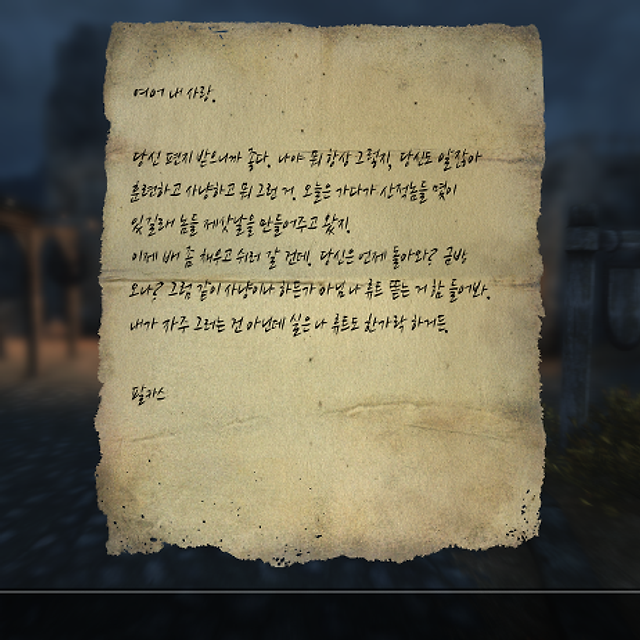 여어 내 사랑.
당신 편지 받으니까 좋다. 나야 뭐 항상 그렇지, 당신도 알잖아
훈련하고 사냥하고 뭐 그런 거. 오늘은 가다가 산적놈들 몇이
있길래 놈들 제삿날을 만들어주고 왔지.
이제 배 좀 채우고 쉬러 갈 건데. 당신은 언제 돌아와? 금방
오나? 그럼 같이 사냥이나 하든가 아님 나 류트 뜯는 거 함 들어봐.
내가 자주 그러는 건 아닌데 실은 나 류트도 한가락 하거든.
팔카스